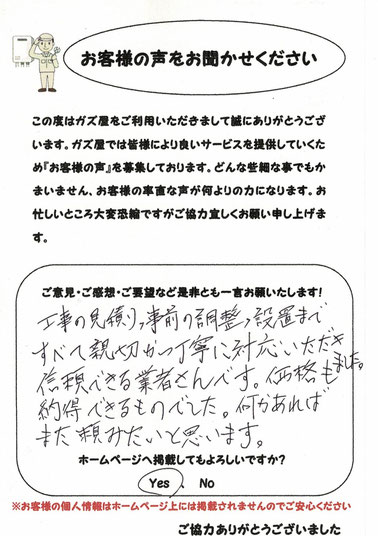 お客様の声をお聞かせください
この度はガズ屋をご利用いただきまして誠にありがとうござ
います。ガズ屋では皆様により良いサービスを提供していくた
め『お客様の声』を募集しております。どんな些細な事でもか
まいません、お客様の率直な声が何よりの力になります。お
忙しいところ大変恐縮ですがご協力宜しくお願い申し上げま
す。
ご意見・ご感想・ご要望など是非とも一言お願いたします!
工事の見積り、事前の調整、設置まで
すべて親切かつ丁寧に対応いただき
ました。
信頼できる業者さんです。価格も
納得できるものでした。何かあれば
また頼みたいと思います。
ホームページへ掲載してもよろしいですか?
Yes . No
※お客様の個人情報はホームページ上には掲載されませんのでご安心ください
ご協力ありがとうございました